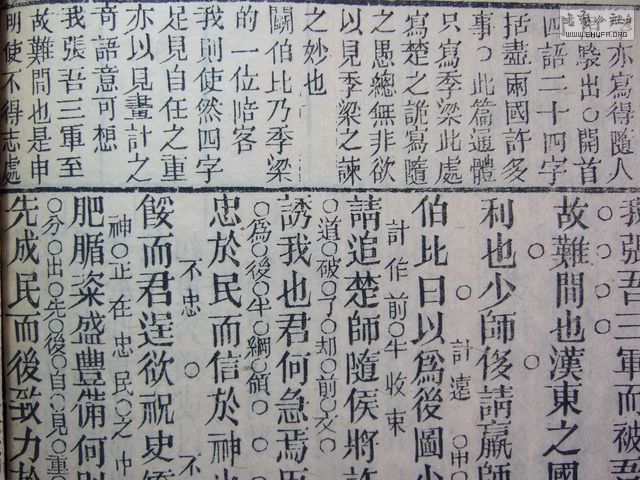 亦寫得隨人
出○開首
四語二十四字
括盡兩國許多
事○此篇通體
只寫季梁此處
寫楚之詭寫隨
之愚總無非欲
以見季梁之諫
之妙也
鬭伯比乃季梁
的一位陪客
我則使然四字
足見自任之重
亦以見畫計之
奇語意可想
我張吾三軍至
故難間也是申
明使不得志處
我張吾三軍而被吾
故難間也漢東之國
利也少師後請羸師
計遠○申
伯比曰以爲後圖少
計作前○半收束
請追楚師隨侯將許
○道○破○了○却○前○文○
誘我也君何急焉臣
○爲○後○半○綱○領○
忠於民而信於神也
不忠 不
餒而君逞欲祝史矯
神○正在忠民○之中
肥腯粢盛豐備何則
○分○出○先○後○自○見○重
先成民而後致力於